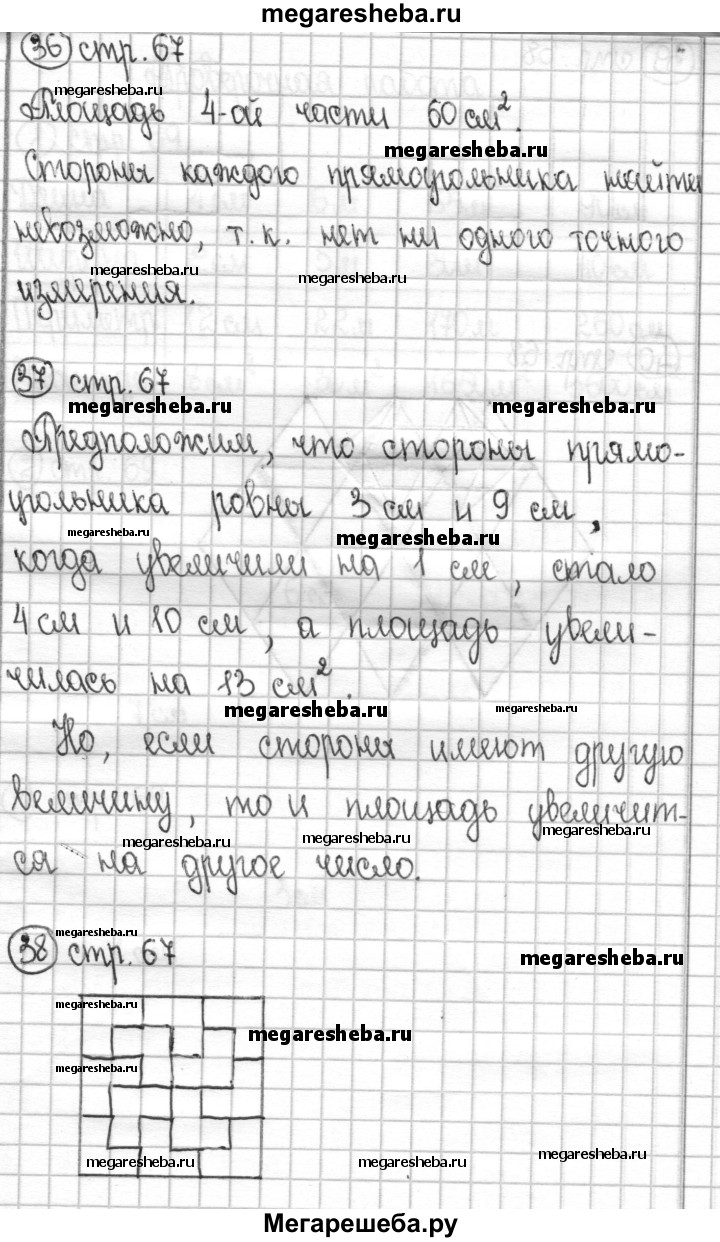 megaresheba.ru
36 стр. 67
megaresheba.ru
Площадь 4-ой части 60 см².
megaresheba.ru
Стороны каждого прямоугольника найти
невозможно, т.к. нет ни одного точного
megaresheba.ru megaresheba.ru
измерения.
37 стр. 67
megaresheba.ru megaresheba.ru
Предположим, что стороны прямо-
угольника ровны 3 см и 9 см,
megaresheba.ru megaresheba.ru
когда увеличили на 1 см, стало
4 см и 10 см, а площадь увели-
чилась на 13 см².
megaresheba.ru megaresheba.ru
Но, если стороны имеют другую
величину, то и площадь увеличит-
megaresheba.ru megaresheba.ru megaresheba.ru
ся на другое число.
megaresheba.ru
38 стр. 67
megaresheba.ru
megaresheba.ru
megaresheba.ru
megaresheba.ru
megaresheba.ru megaresheba.ru megaresheba.ru
Мегарешеба.ру